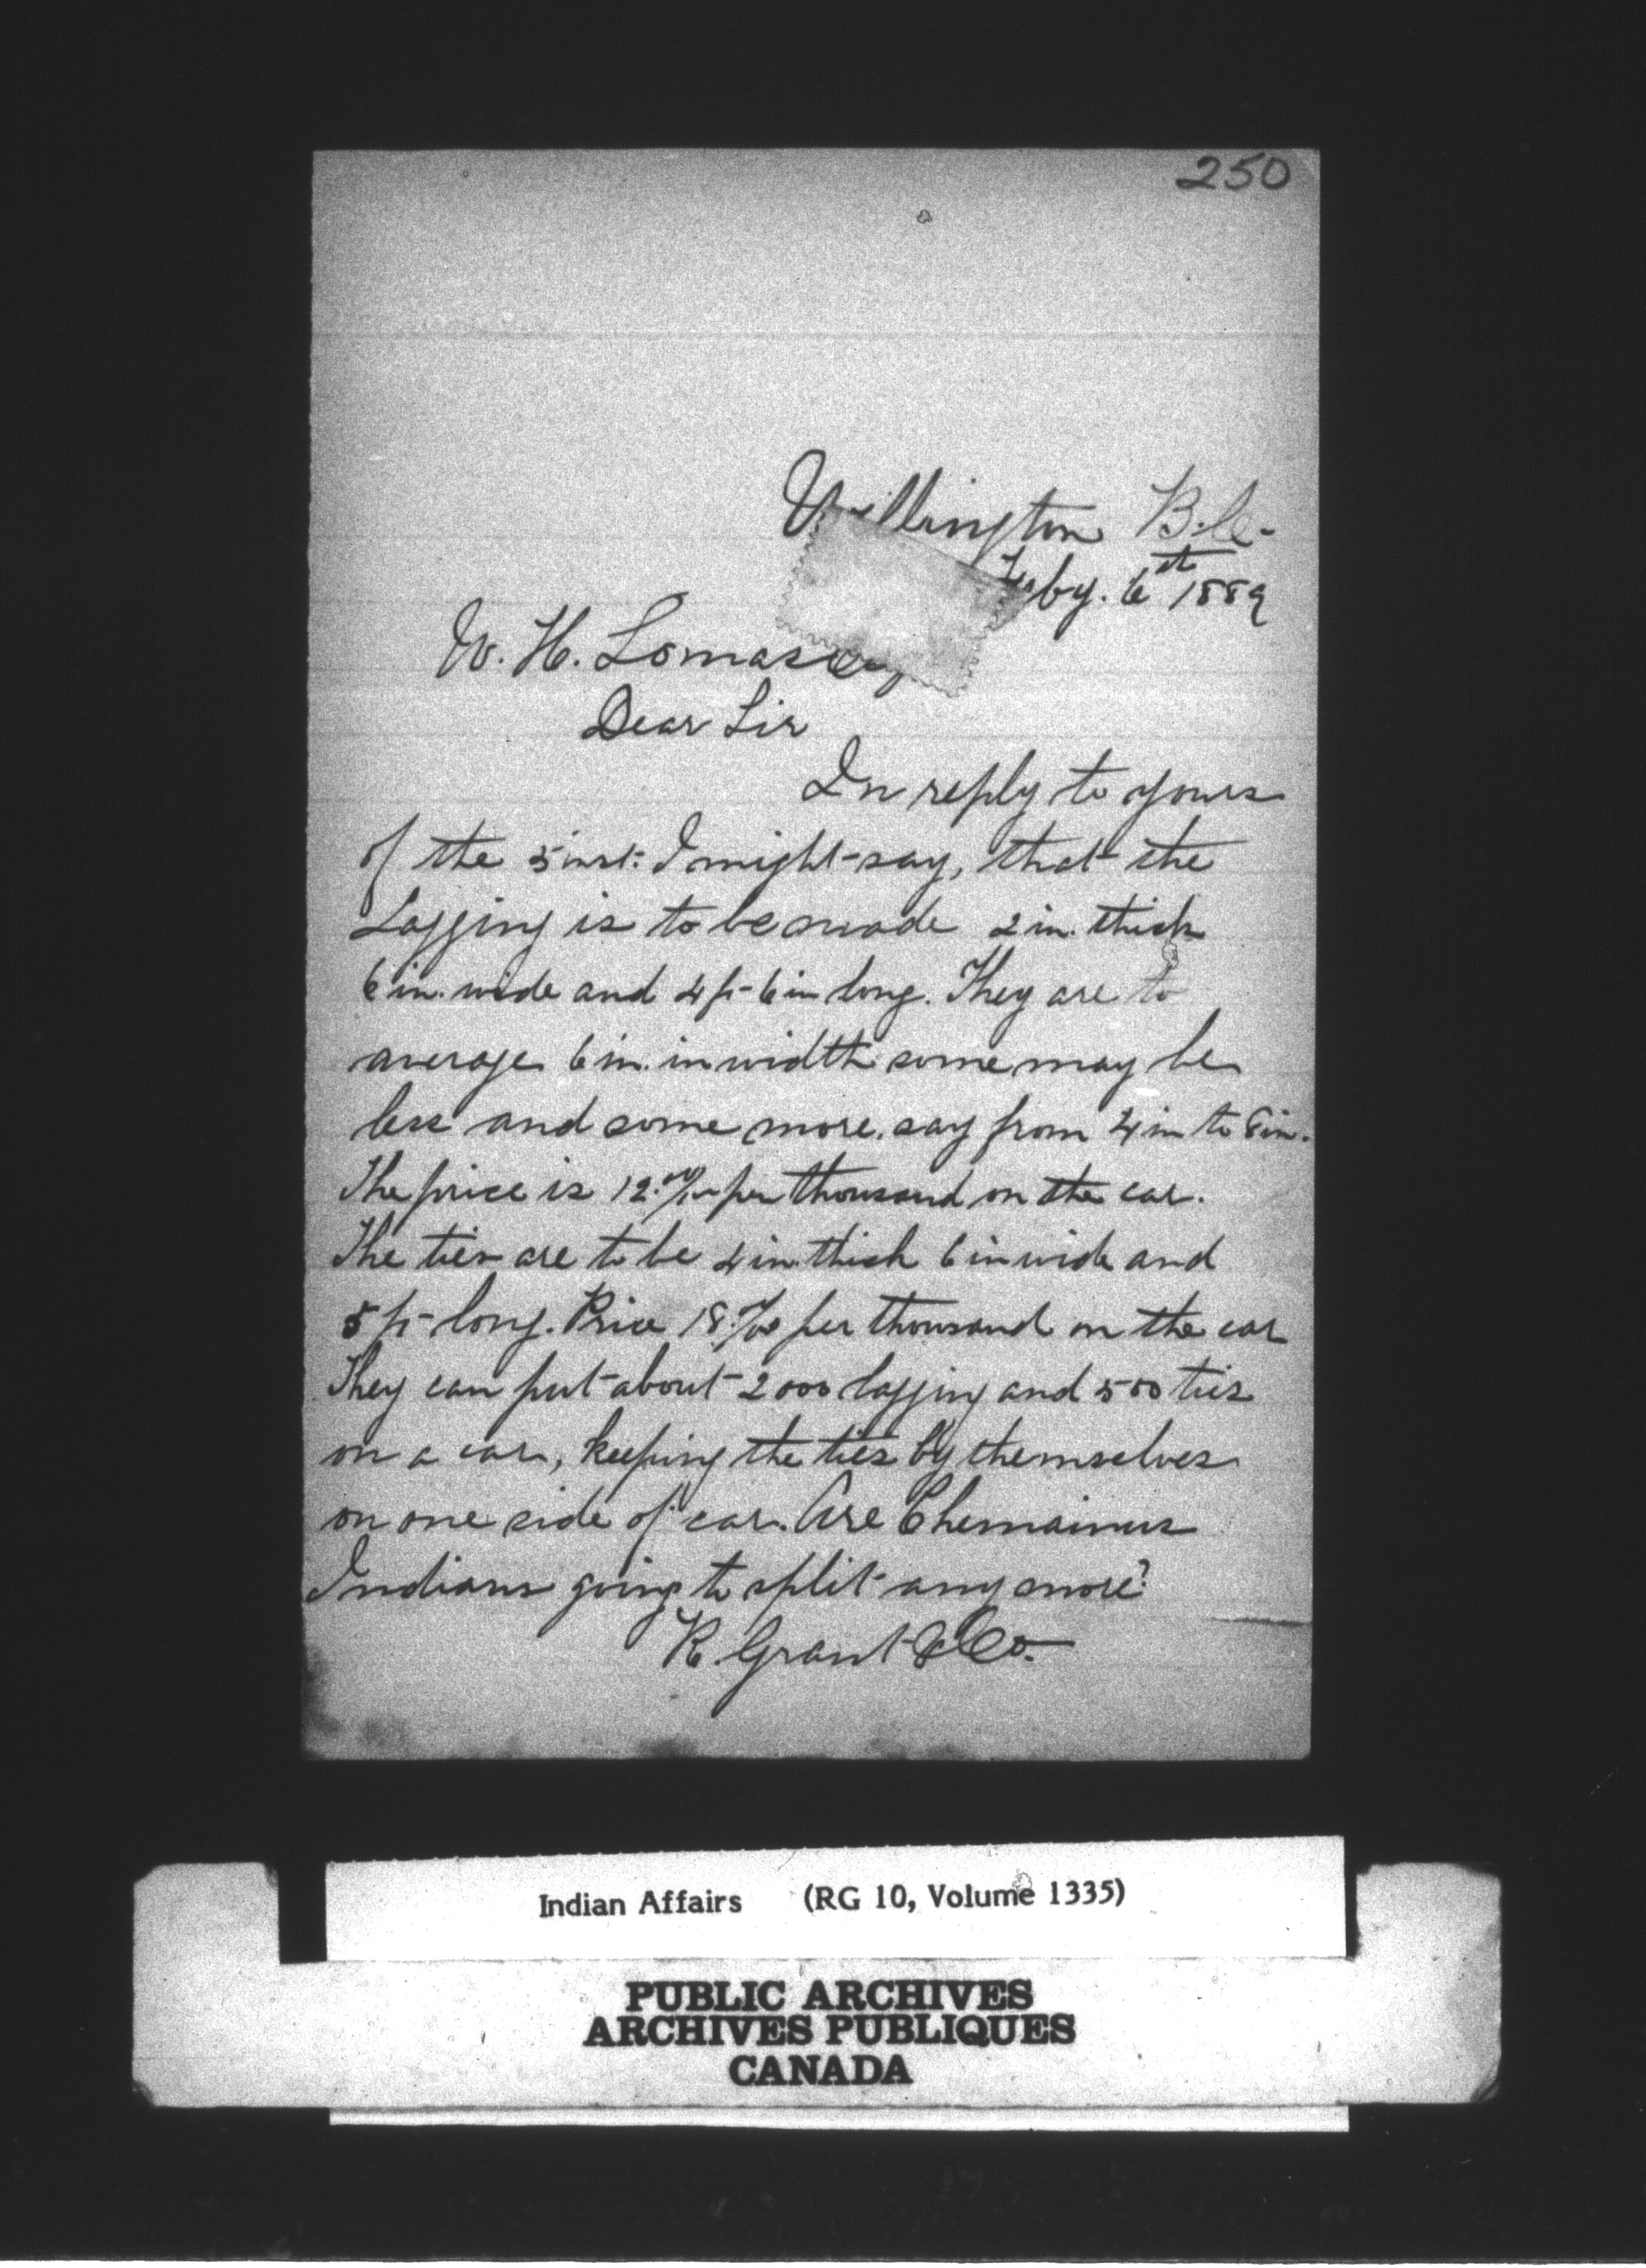 250
Wellington B.C.
Feby. 6th 1889
W. H. Lomas
Dear Sir
In reply to yours
of the 5 inst: I might say, that the
Lagging is to be made 2 in. thick
6 in. wide and 4 ft 6 in long. They are to
average 6 in. in width some may be
less and some more, say from 4 in to 8 in.
The price is 12.00/100 per thousand on the car.
The ties are to be 4 in. thick 6 in wide and
5 ft long. Price 18.00/100 per thousand on the car
They can put about 2000 lagging and 500 ties
on a car, keeping the ties by themselves
on one side of car. Are Chemainus
Indians going to split any more?
R. Grant & Co.
Indian Affairs (RG 10, Volume 1335)
PUBLIC ARCHIVES
ARCHIVES PUBLIQUES
CANADA